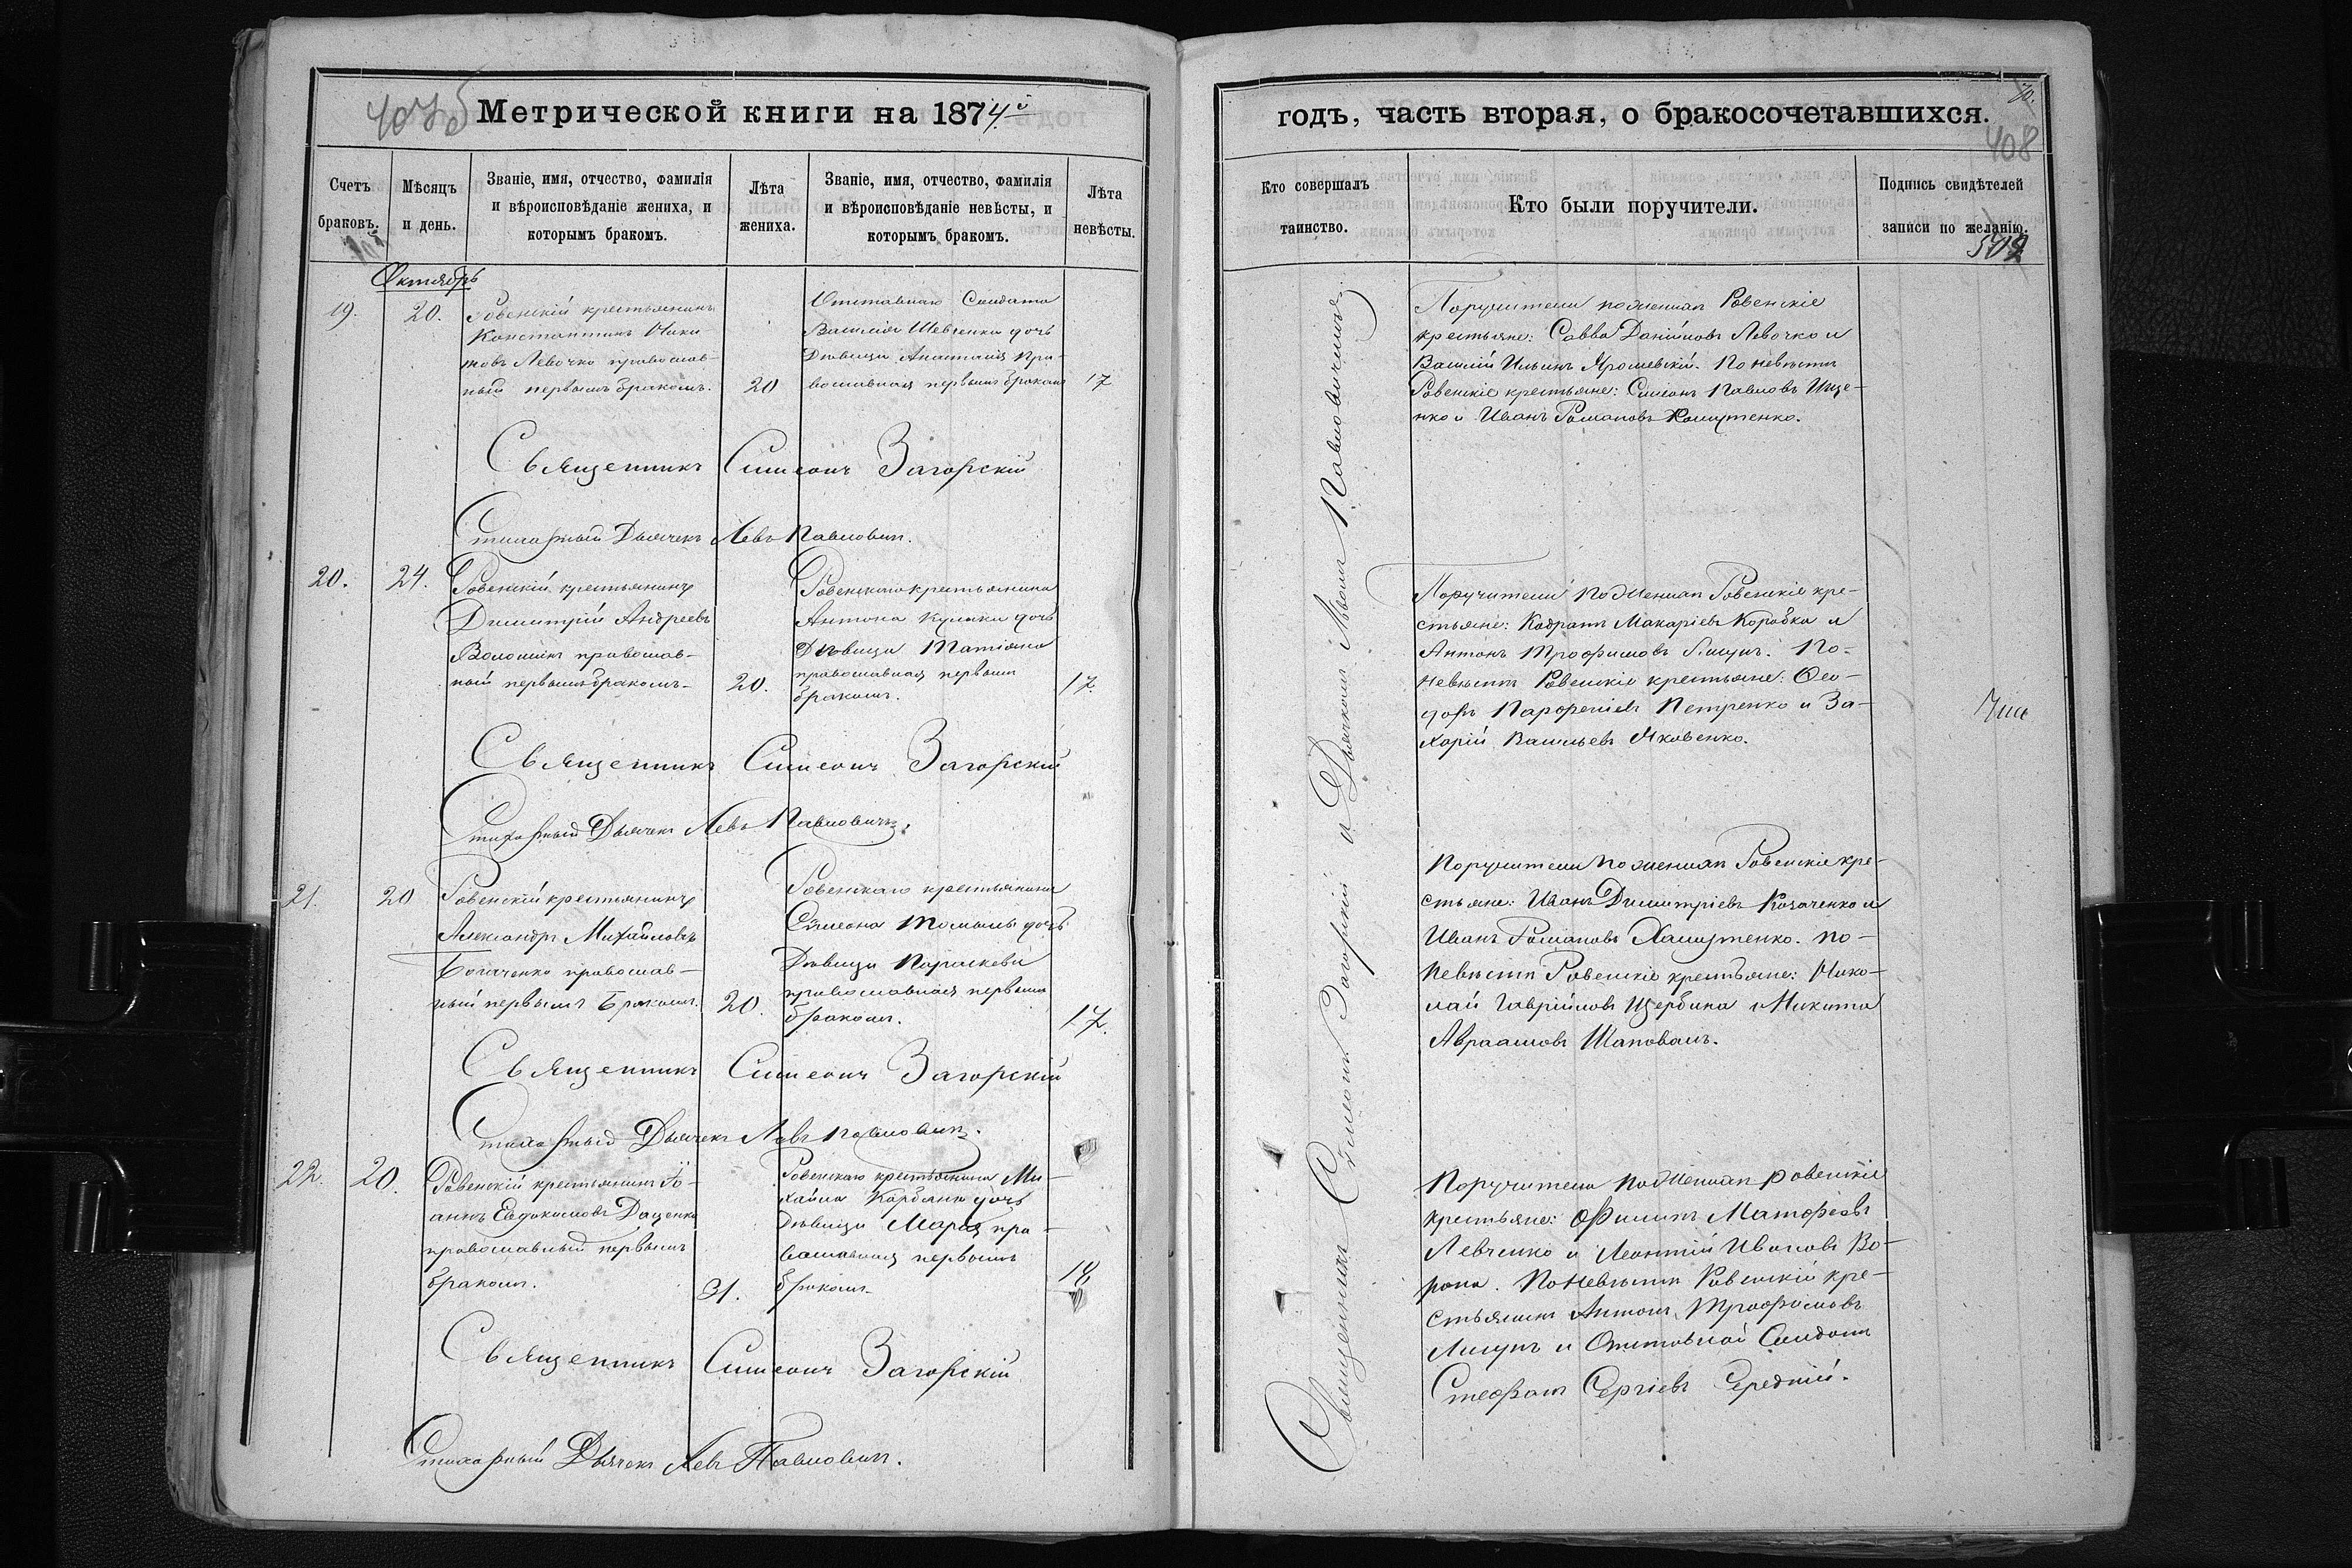 Метрической книги на 1874й
Счетъ браковъ.
Мѣсяцъ и день.
Званіе, имя, отчество, фамилія
и вѣроисповѣданіе жениха, и
которымъ бракомъ.
Лѣта жениха.
Званіе, имя, отчество, фамилія
и вѣроисповѣданіе невѣсты, и
которымъ бракомъ.
Лѣта невѣсты.
Октябрь
19.
20.
Ровенскій крестьянинъ
Константинъ Ники
товъ Левочко православ-
ный первымъ бракомъ.
20
Отставнаго Солдата
Василія Шевченка дочь
Дѣвица Анастасія пра-
вославная первымъ бракомъ
17
Священникъ Симеонъ Загорскій
Стихарный Дьячекъ Левъ Павловичъ.
20.
24.
Ровенскій крестьянинъ
Димитрій Андреевъ
Волошинъ православ-
ный первымъ бракомъ.
20.
Ровенскаго крестьянина
Антона Кулика дочь
Дѣвица Татіана
православная первымъ
бракомъ.
17.
Священникъ Симеонъ Загорскій
Стихарный Дьячекъ Левъ Павловичъ.
21.
20
Ровенскій крестьянинъ
Александръ Михайловъ
Богаченко православ-
ный первымъ бракомъ.
20.
Ровенскаго крестьянина
Дѣвица Параскева
православная первымъ
бракомъ.
17.
Священникъ Симеонъ Загорскій
Стихарный Дьячекъ Левъ Павловичъ.
22.
20.
Ровенскій крестьянинъ Іо-
аннъ Евдокимовъ Даценко
православный первымъ
бракомъ.
31.
Ровенскаго крестьянина Ми-
хаила Карбаня дочь
Дѣвица Марія пра-
вославная первымъ
бракомъ
18
Священникъ Симеонъ Загорскій
Стихарный Дьячекъ Левъ Павловичъ.
годъ, часть вторая, о бракосочетавшихся.
408
Кто совершалъ таинство.
Кто были поручители.
Подпись свидѣтелей
записи по желанію.
Священникъ Симеонъ Загорскій и Дьячкомъ Львомъ Павловичемъ.
Поручители по женихѣ Ровенскіе
крестьяне: Савва Даніиловъ Левочко и
Василій Ильинъ Ярошевскій. По невѣстѣ
Ровенскіе крестьяне: Симеонъ Павловъ Ище-
нко и Иванъ Романовъ Хомутенко.
Поручители по женихѣ Ровенскіе кре-
стьяне: Кодратъ Макаріевъ Коробка и
Антонъ Трофимовъ Лищъ. По-
невѣстѣ Ровенскіе крестьяне: Ѳео-
доръ Парфеніевъ Петренко и За-
харій Васильевъ Яковенко.
Поручители по женихѣ Ровенскіе кре-
стьяне: Иванъ Димитріевъ Козаченко и
Иванъ Романовъ Хамутенко. по-
невѣстѣ Ровенскіе крестьяне: Нико-
лай Гавріиловъ Щербина и Никита
Авраамовъ Шаповалъ.
Поручители по женихѣ ровенскіе
крестьяне: Филипъ Матфеевъ
Левченко и Леонтій Ивановъ Во-
рона. По невѣстѣ Ровенскій кре-
стьянинъ Антонъ Трофимовъ
и Отставной Солдатъ
Стефанъ Сергіевъ Середній.